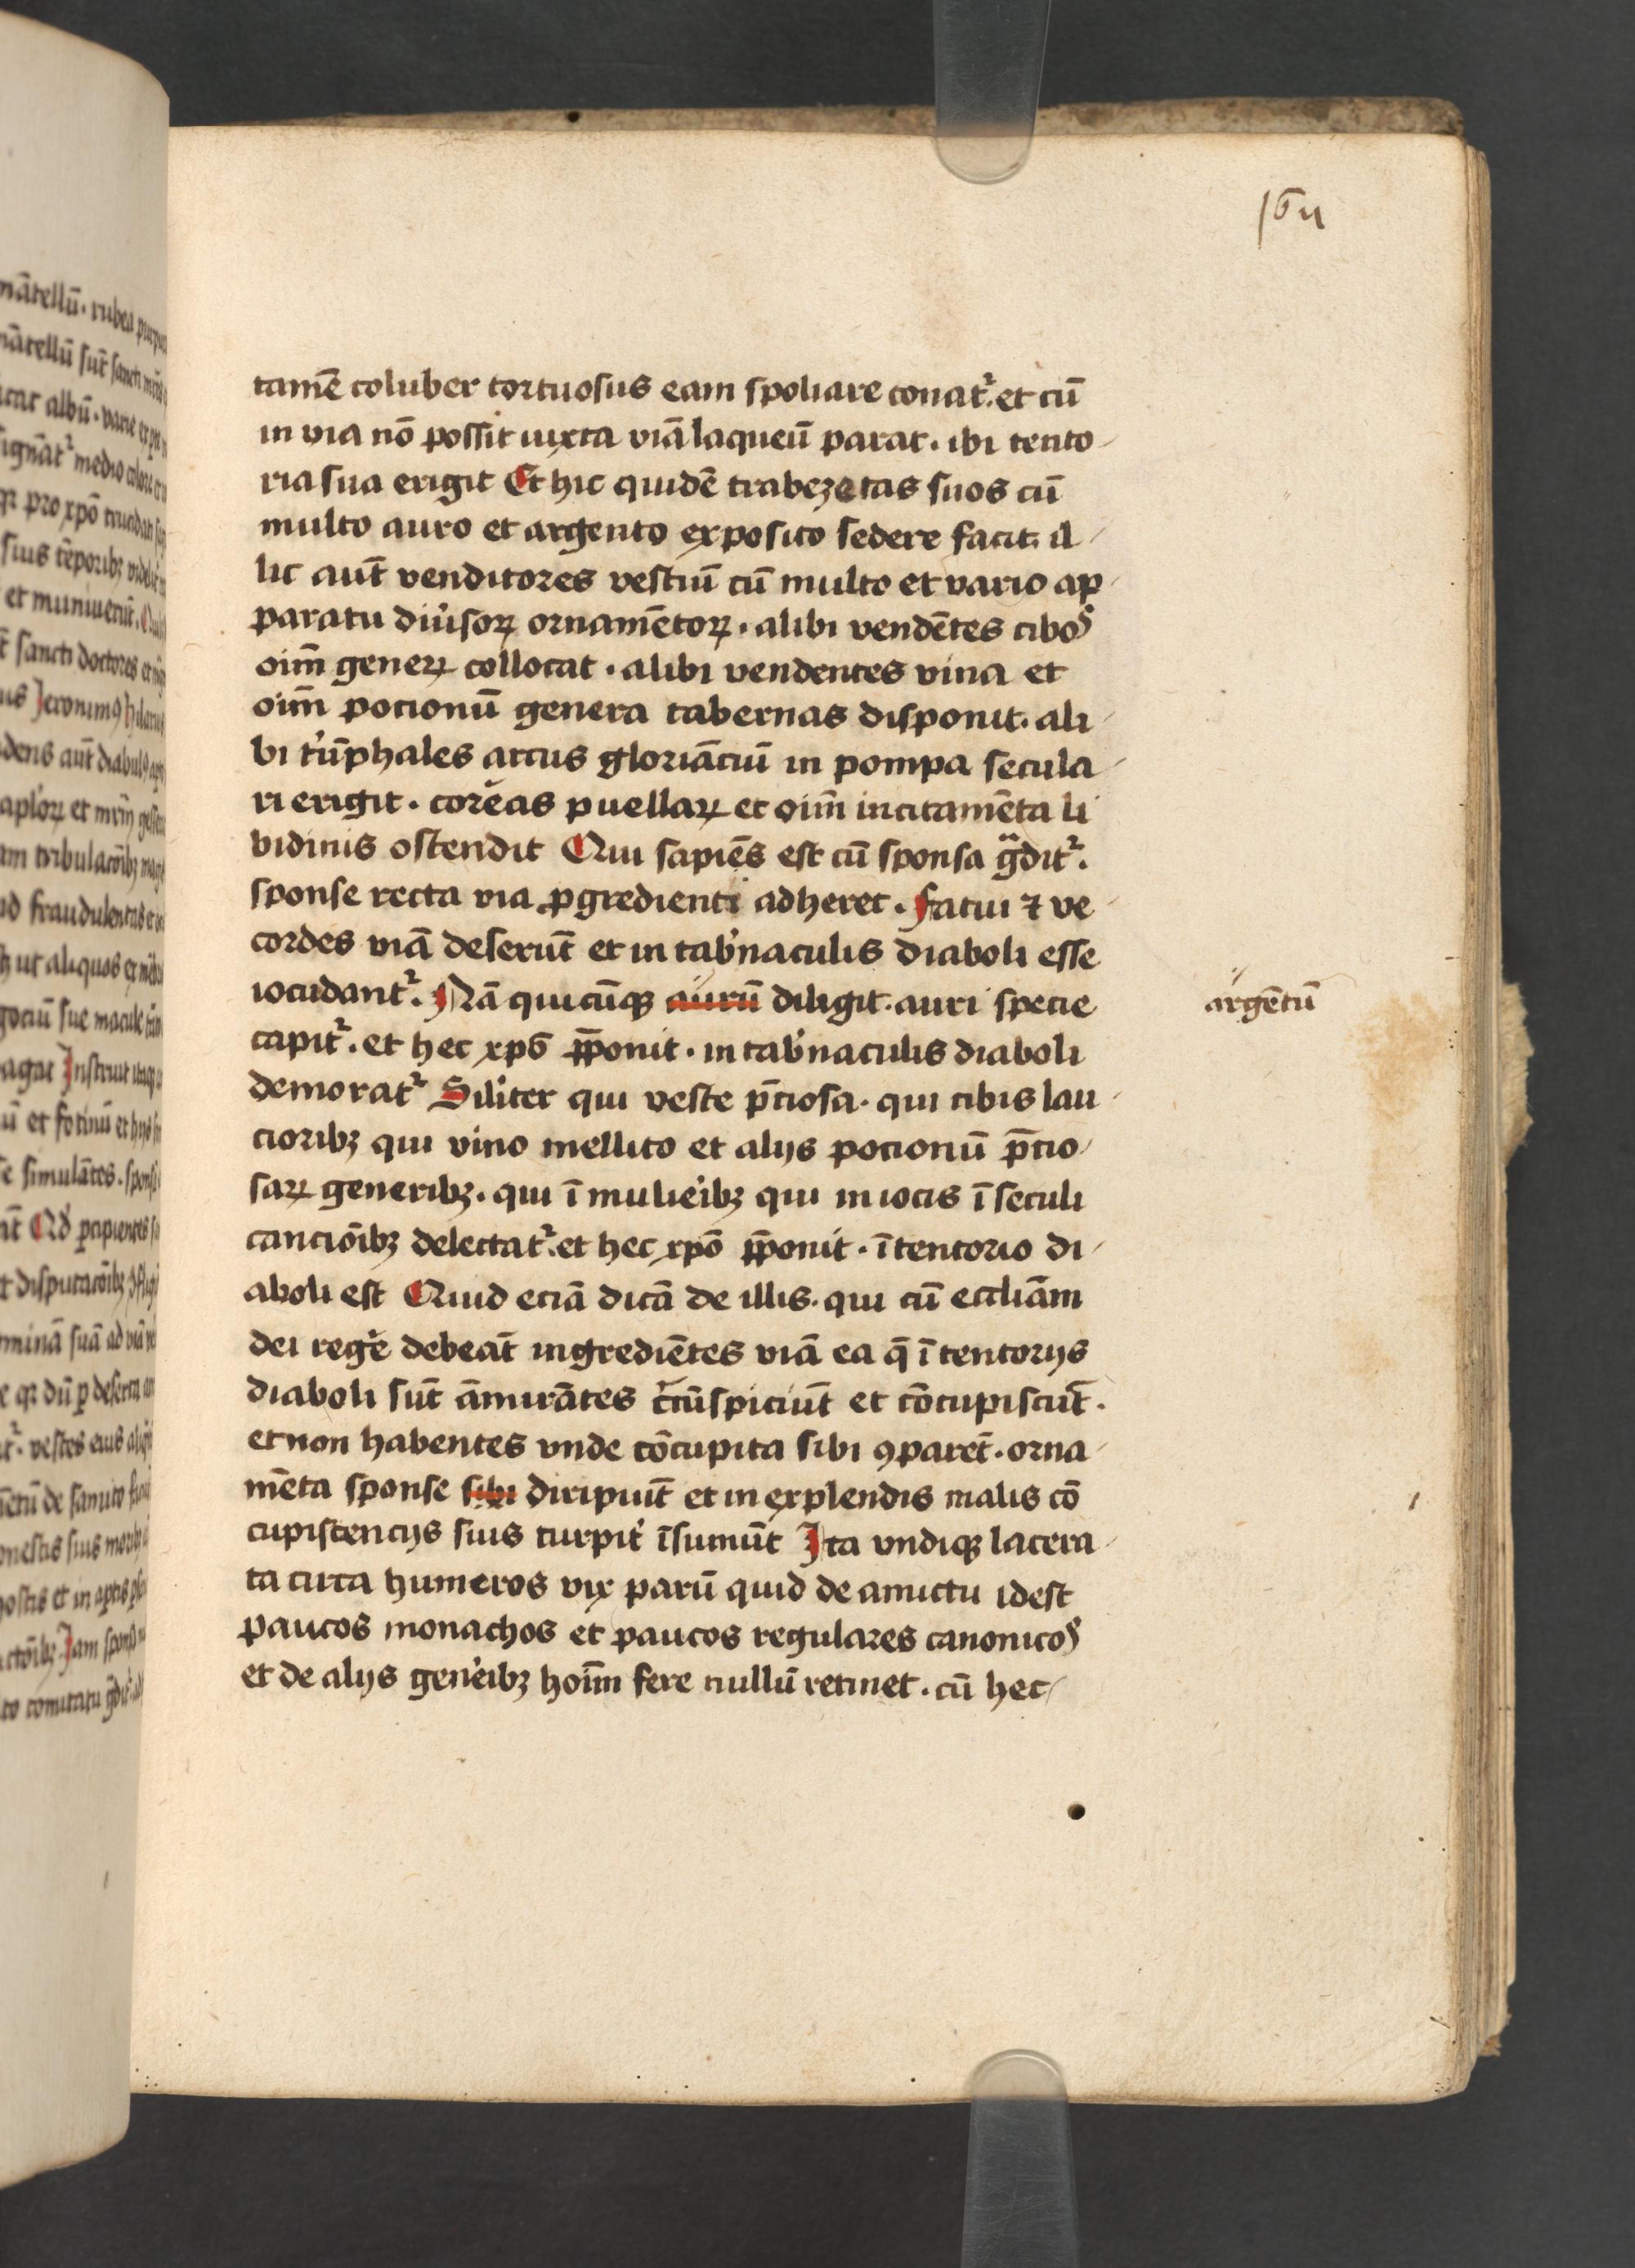 16u
tamē coluber tortuosus eam spoliare conat᷑. et cū
in via nō possit iuxta viā laqueū parat · ibi tento-
ria sua erigit Et hic quidē trabezetas suos cū
multo auro et argento exposito sedere facit il-
lic aut̄ venditores vestiū cū multo et vario ap-
paratu diu'soꝝ ornamētoꝝ · alibi vendētes ciboꝰ
oīm̄ geneꝝ collocat · alibi vendentes vina et
oīm̄ pocionū genera tabernas disponit · ali-
bi t'ūphales arcus gloriāciū in pompa secula-
ri erigit · coreas puellaꝝ et oīm̄ incitamēta li
bidinis ostendit Qui sapiēs est cū sponsa gͣdit᷑.
sponse recta via ꝓgredienti adheret · Fatui ⁊ ve-
cordes viā deserūt et in tab'naculis diaboli esse
iocūdant᷑. Nā quicūqꝫ aurū diligit · auri specie
argētū
capit᷑. et hec xpō p̄ponit · in tab'naculis diaboli
demorat᷑ Sil'iter qui veste p̄ciosa · qui cibis lau-
cioribꝫ qui vino mellito et alijs pocionū p̄cio-
saꝝ generibꝫ · qui ī mulie'ibꝫ qui in iocis ī seculi
canciōibꝫ delectat᷑. et hec xpō p̄ponit · ī tentorio di-
aboli est Quid eciā dicā de illis · qui cū eccliām
dei reg'e debeāt ingrediētes viā ea q̄ ī tentorijs
diaboli sūt āmirātes c'cūspiciūt et cōcupiscūt ·
et non habentes vnde cōcupita sibi ꝯparēt · orna-
mēta sponse sibi diripiūt et in explendis malis cō
cupiscencijs suis turpit' īsumūt Ita vndiqꝫ lacera-
ta circa humeros vix parū quid de amictu idest
paucos monachos et paucos regulares canonicoꝰ
et de alijs gene'ibꝫ hoīm̄ fere nullū retinet · cū hec-